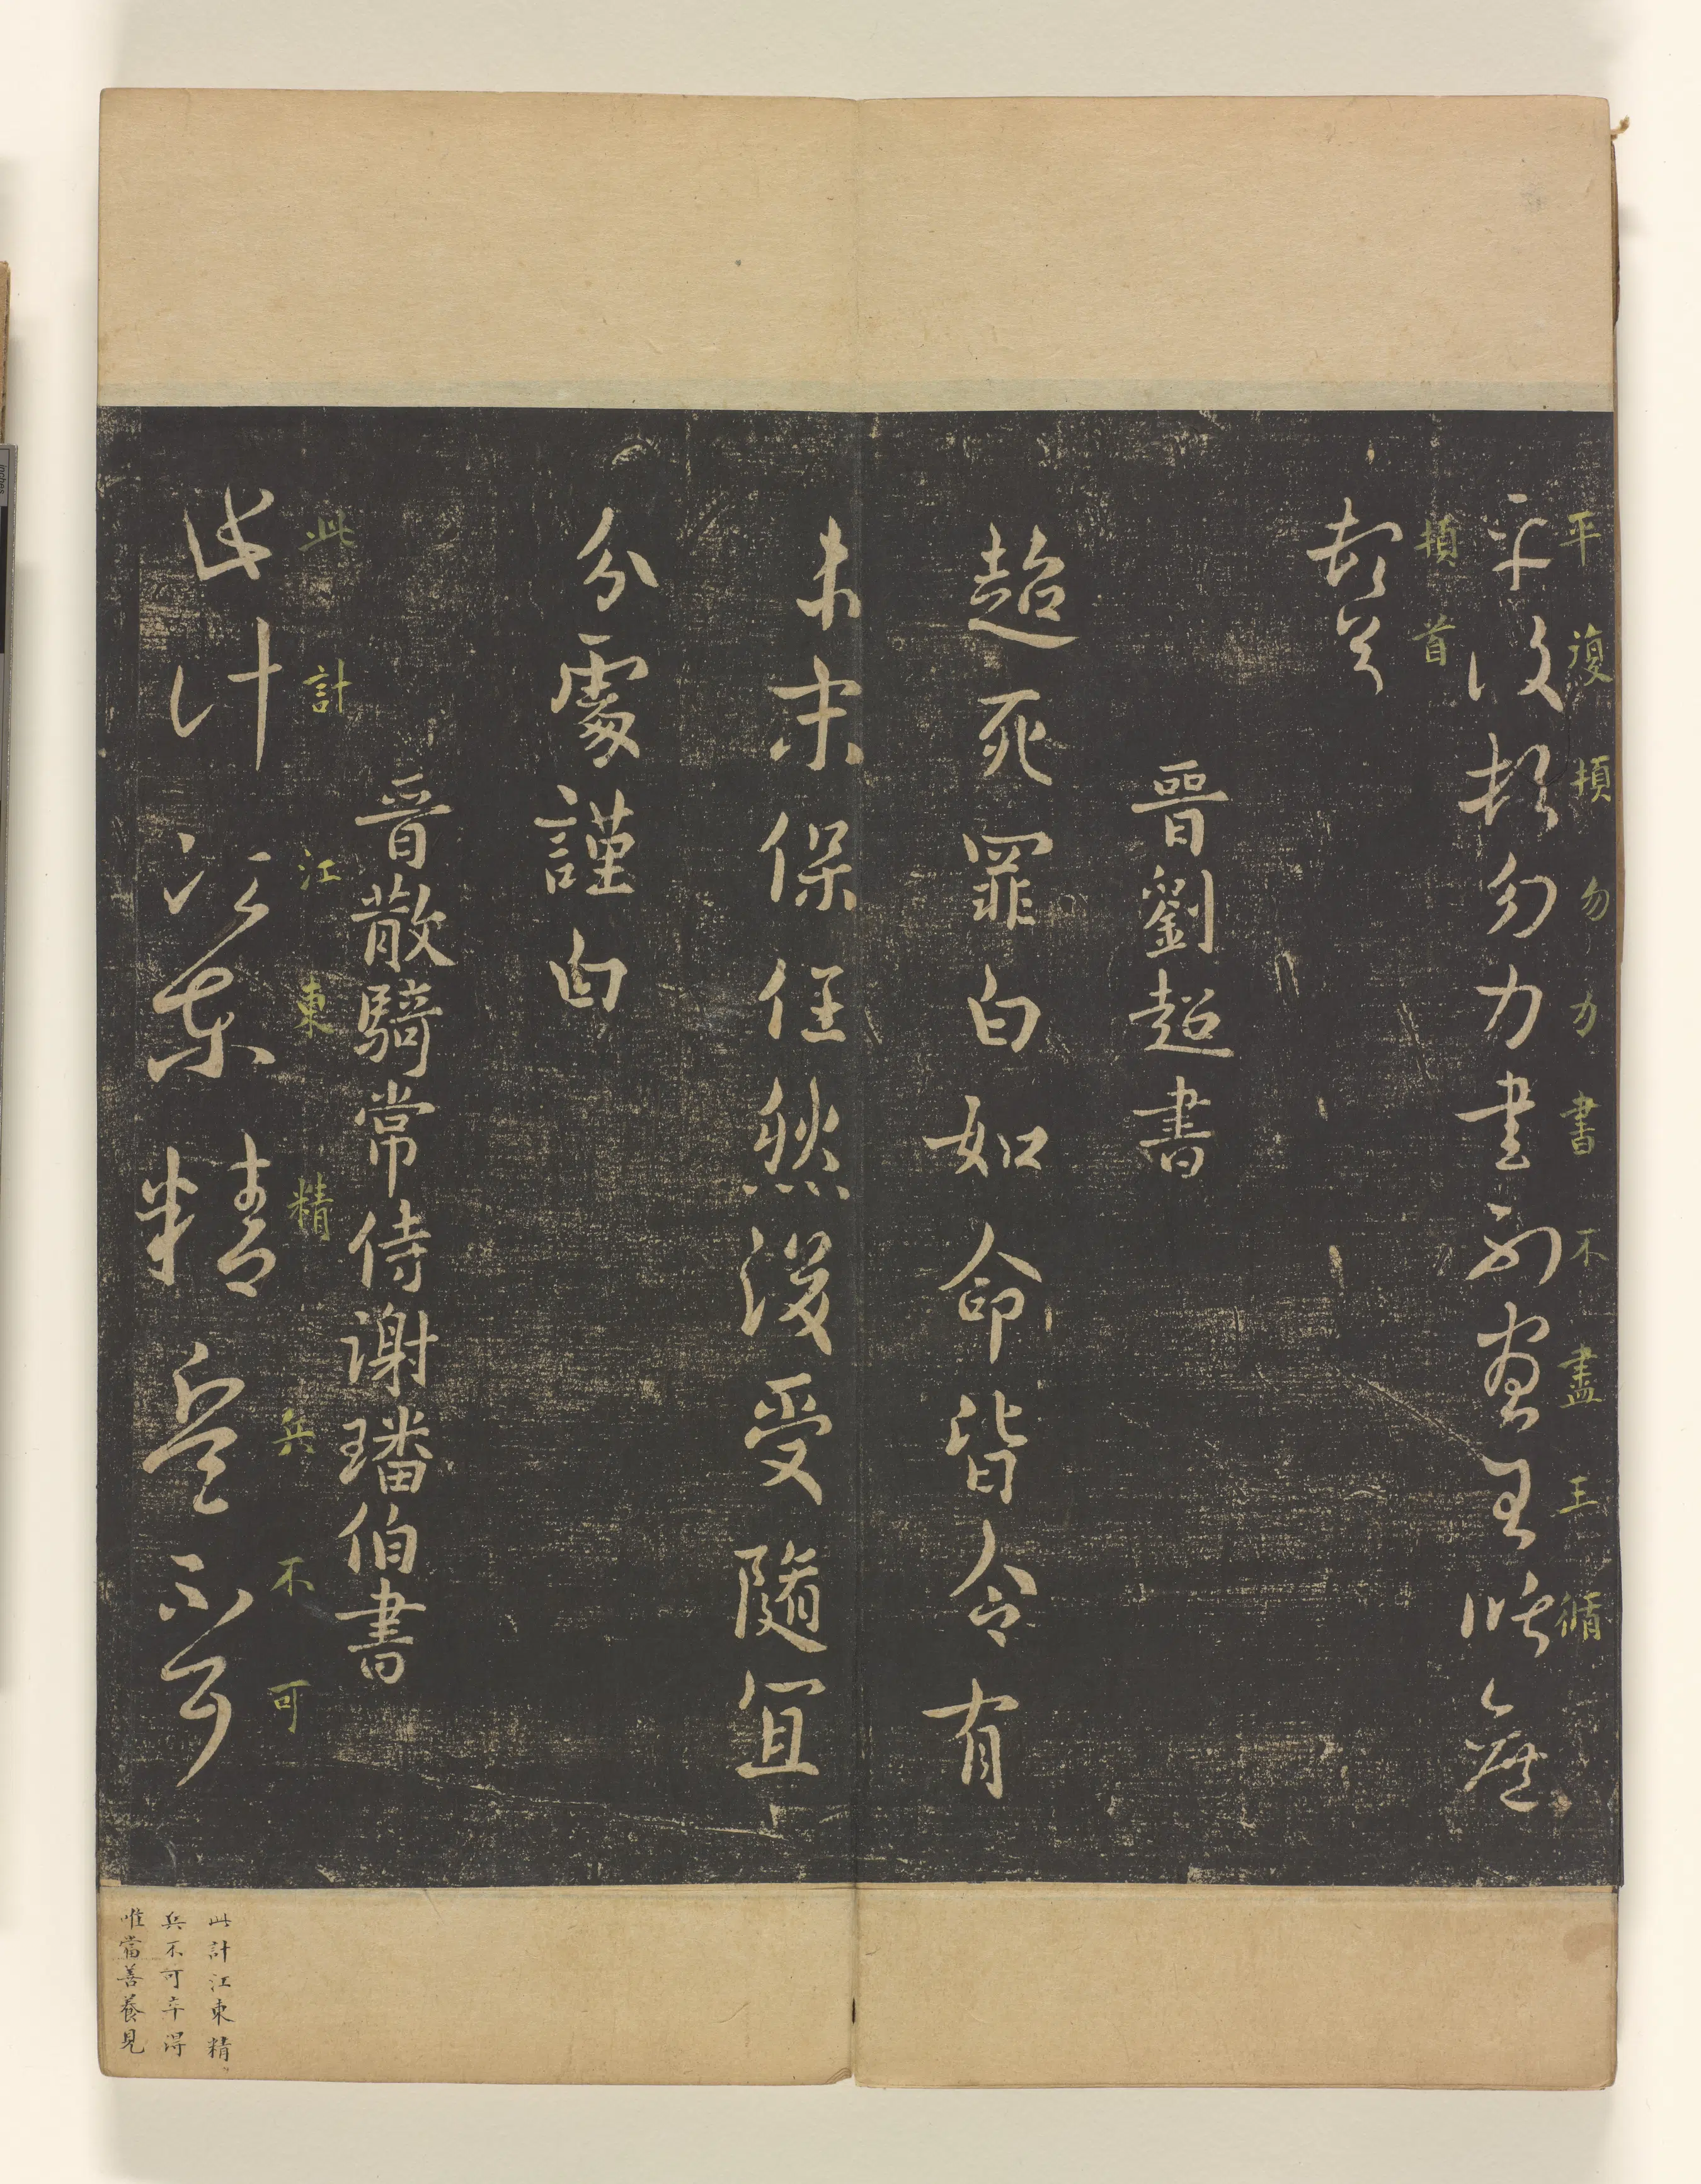 平復頓勿力書不盡王循
平復頓勿力書不盡王
頓首
頓首
晉劉超書
超死罪白如命皆令有
未宋保任然後受隨宜
分處謹白
晉散騎常侍謝璠伯書
此計江東精兵不可
此計江東精兵不可
此計江東精
兵不可卒得
唯當善養見